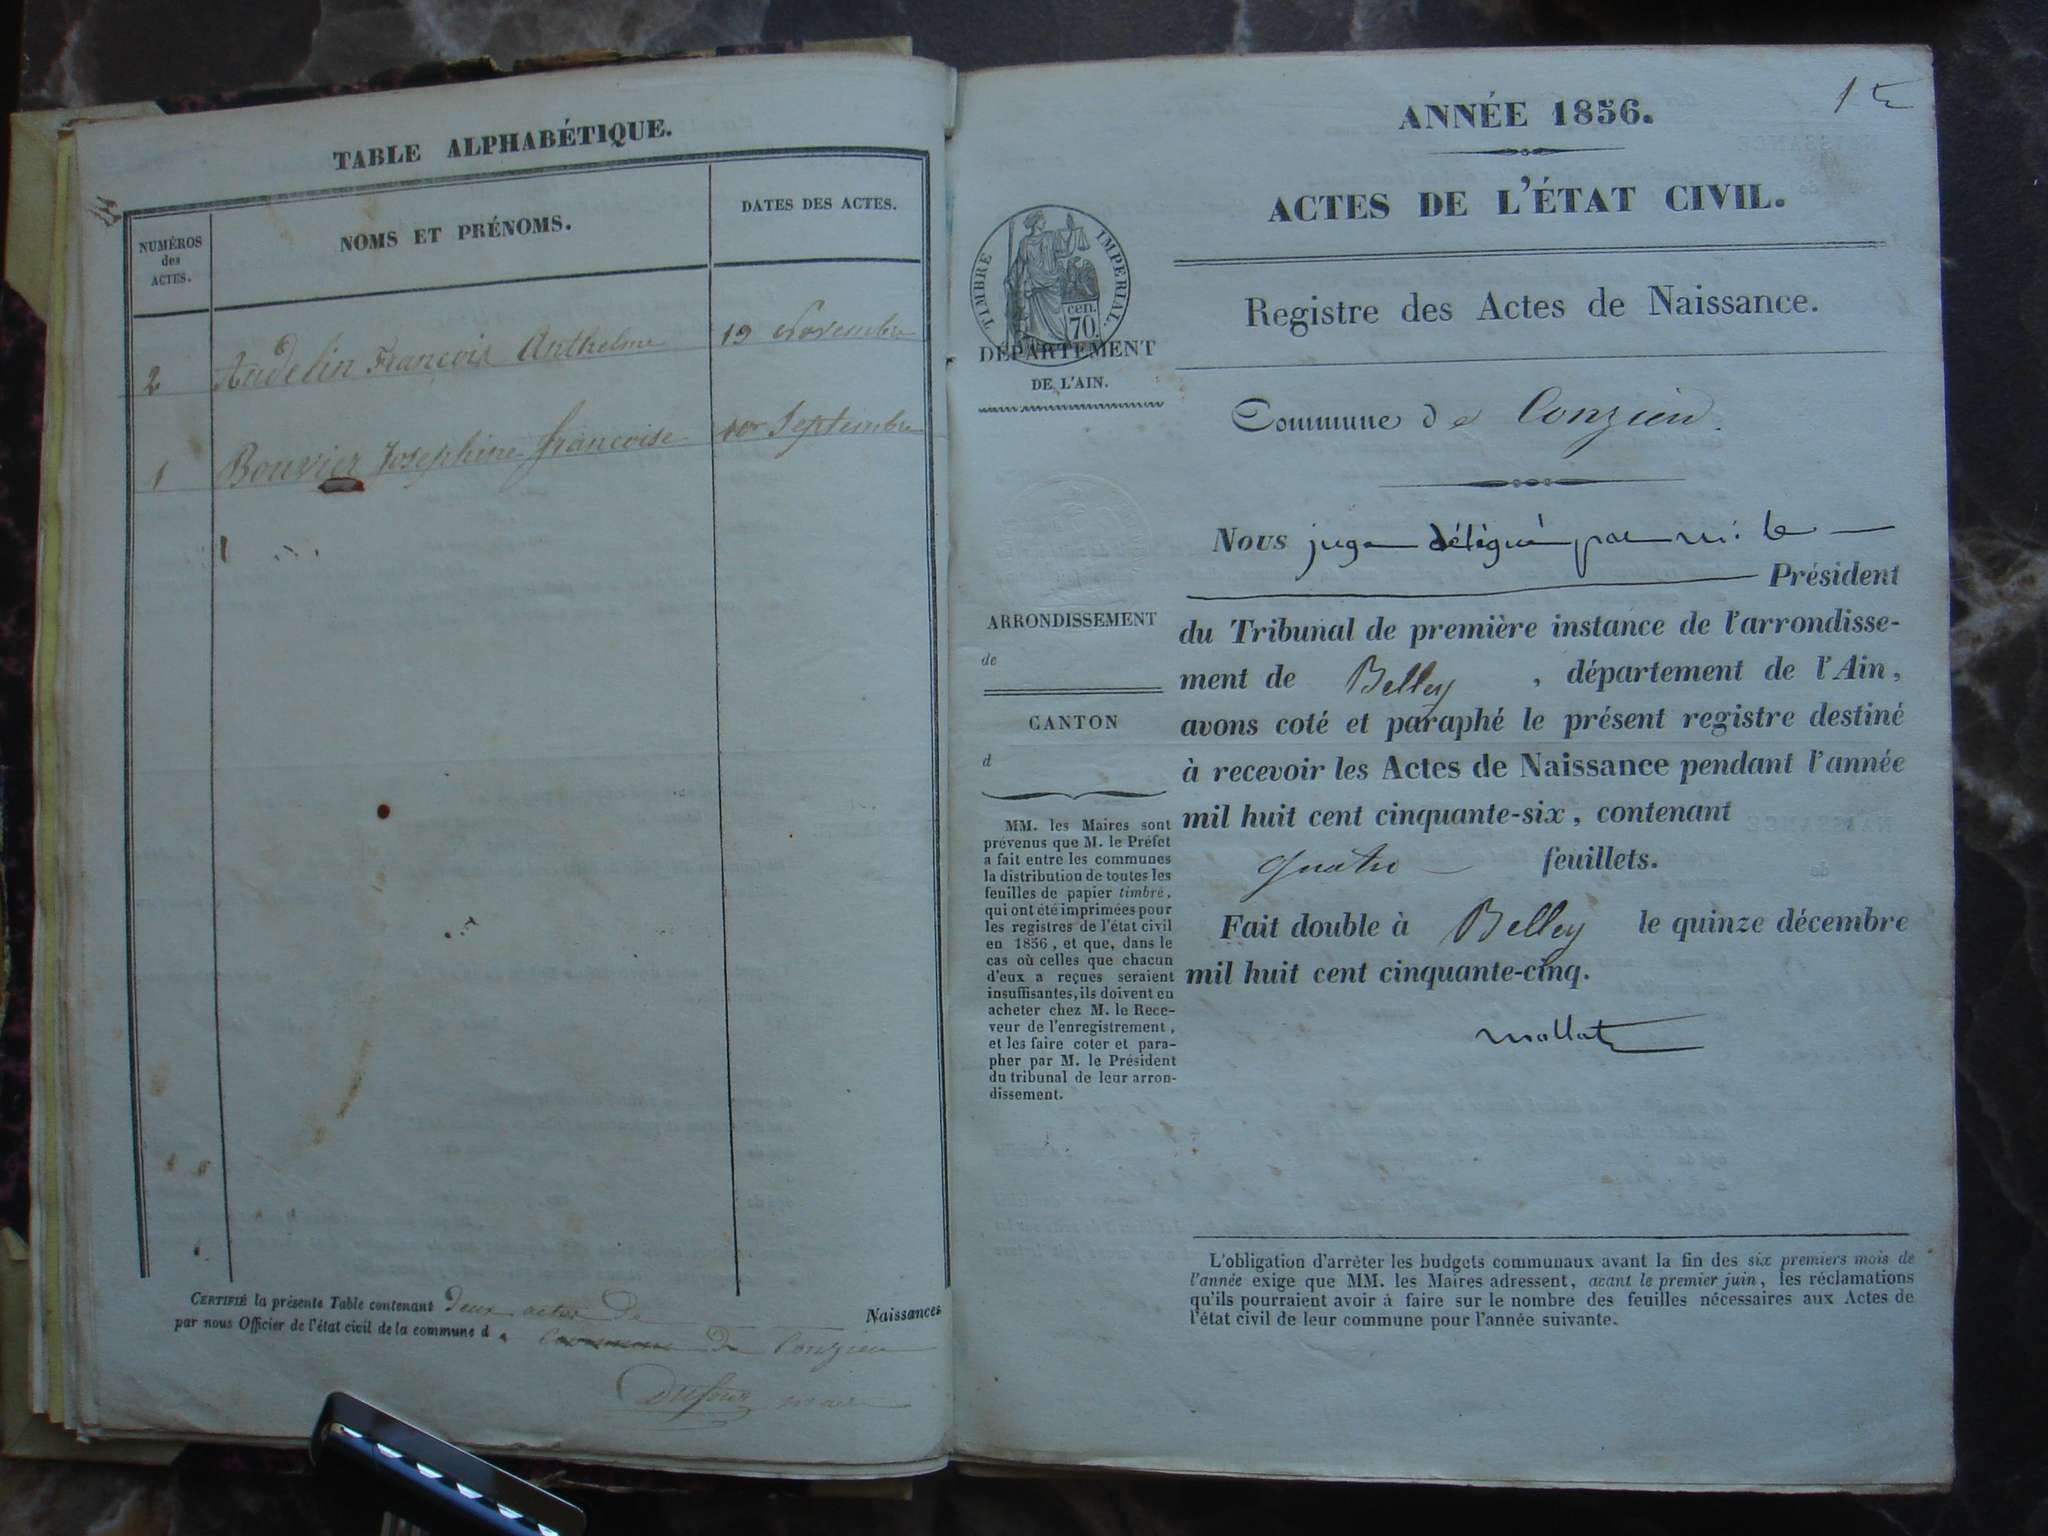 TABLE ALPHABÉTIQUE.
NUMÉROS
des
ACTES.
NOMS ET PRÉNOMS.
DATES DES ACTES.
2 Andelin François Anthelme 19 Novembre
1 Bouvier Josephine francoise 1er Septembre
CERTIFIÉ la présente Table contenant deux actes de Naissances
par nous Officier de l'état civil de la commune d commune de Conzieu
Dufour maire
1er
ANNÉE 1856.
ACTES DE L'ÉTAT CIVIL.
TIMBRE IMPERIAL.
cen.
70.
DÉPARTEMENT
DE L'AIN.
Registre des Actes de Naissance.
Commune de Conzieu.
ARRONDISSEMENT
de
CANTON
d
MM. les Maires sont
prévenus que M. le Préfet
a fait entre les communes
la distribution de toutes les
feuilles de papier timbré,
qui ont été imprimées pour
les registres de l'état civil
en 1856, et que, dans le
cas où celles que chacun
d'eux a reçues seraient
insuffisantes, ils doivent en
acheter chez M. le Rece-
veur de l'enregistrement,
et les faire coter et para-
pher par M. le Président
du tribunal de leur arron-
dissement.
Nous juge délégué par m. le
Président
du Tribunal de première instance de l'arrondisse-
ment de Belley, département de l'Ain,
avons coté et paraphé le présent registre destiné
à recevoir les Actes de Naissance pendant l'année
mil huit cent cinquante-six, contenant
quatre feuillets.
Fait double à Belley le quinze décembre
mil huit cent cinquante-cinq.
L'obligation d'arrêter les budgets communaux avant la fin des six premiers mois de
l'année exige que MM. les Maires adressent, avant le premier juin, les réclamations
qu'ils pourraient avoir à faire sur le nombre des feuilles nécessaires aux Actes de
l'état civil de leur commune pour l'année suivante.